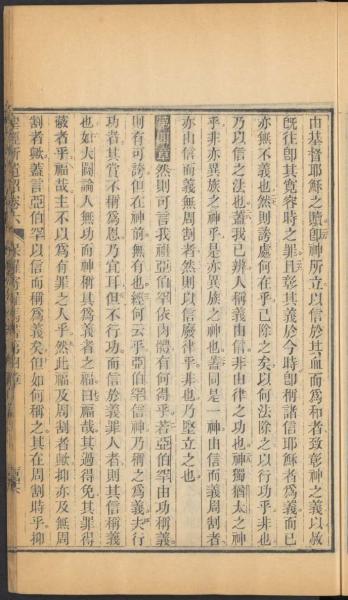 由基督耶穌之贖卽神所立以信於其血而爲和者致彰神之義以赦
旣往卽其寬容時之罪且彰其義於今時卽稱諸信耶穌者爲義而己
亦無不義也然則誇處何在乎已除之矣以何法除之以行功乎非也
乃以信之法也蓋我已辨人稱義由信非由律之功也神獨猶太之神
乎非亦異族之神乎是亦異族之神也蓋同是一神由信而義周割者
亦由信而義無周割者然則以信廢律乎非也乃堅立之也
第四章 然則可言我祖亞伯罕依肉體有何得乎若亞伯罕由功稱義
則有可誇但在神前無有也經何云乎亞伯罕信神乃稱之爲義夫行
功者其賞不稱爲恩乃宜耳但不行功而信於義罪人者則其信稱義
也如大闢論人無功而神稱其爲義者之福曰福哉其過得免其罪得
蔽者乎福哉主不以爲有罪之人乎然此福及周割者歟抑亦及無周
割者歟蓋言亞伯罕以信而稱爲義矣但如何稱之其在周割時乎抑